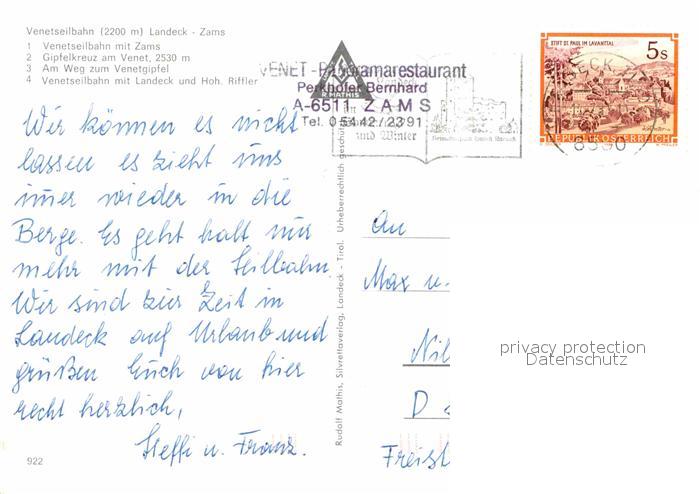 Venetseilbahn (2200 m) Landeck - Zams
1 Venetseilbahn mit Zams
2 Gipfelkreuz am Venet, 2530 m
3 Am Weg zum Venetgipfel
4 Venetseilbahn mit Landeck und Hoh. Riffler
VENET - Panoramarestaurant
Perkhofer Bernhard
A-6511 ZAMS
Tel. 05442/2391
und Winter
R. MATHIS
STIFT ST. PAUL IM LAVANTTAL
5s
REPUBLIK ÖSTERREICH
Wir können es nicht
lassen es zieht uns
imer wieder in die
Berge. Es geht halt nur
mehr mit der Seilbahn
Wir sind zur Zeit in
Landeck auf Urlaub und
grüßen Euch von hier
recht herzlich,
Steffi u. Franz.
922
Rudolf Mathis, Silvrettaverlag, Landeck - Tirol. Urheberrechtlich geschützt
An
Max u.
Nil
D
Freist
privacy protection
Datenschutz